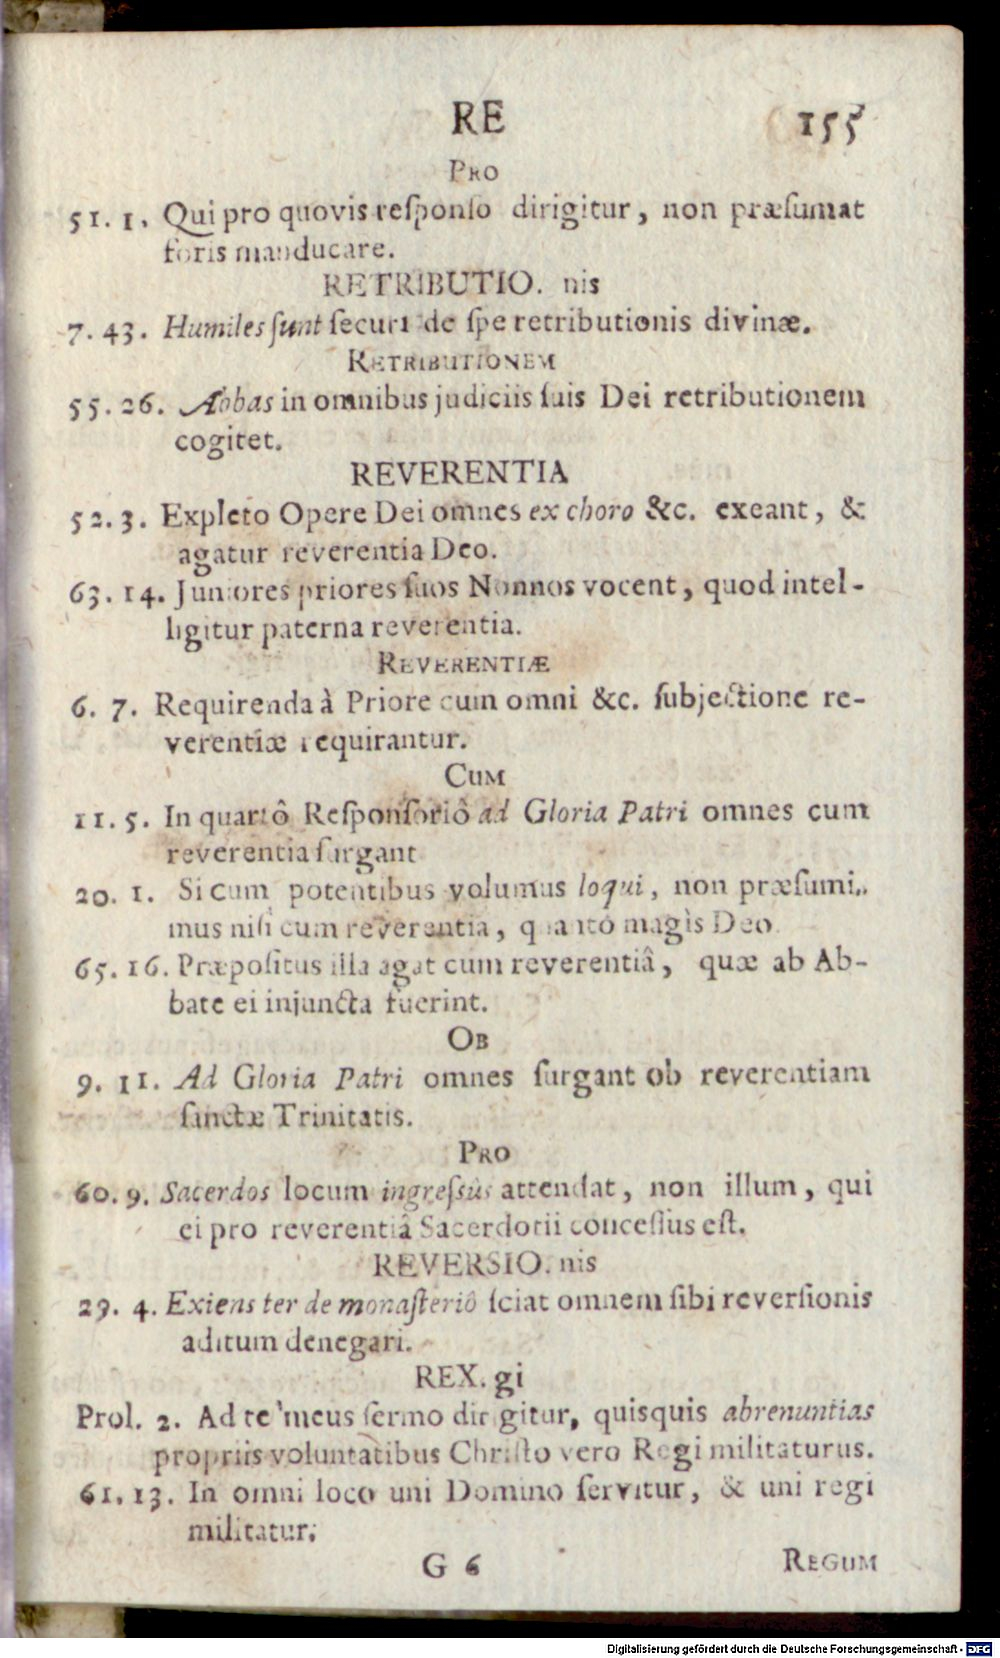 RE 155
Pro
51. 1. Qui pro quovis responso dirigitur, non præsumat
foris manducare.
RETRIBUTIO. nis
7. 43. Humiles sunt securi de spe retributionis divinæ.
Retributionem
55. 26. Abbas in omnibus judiciis suis Dei retributionem
cogitet.
REVERENTIA
52. 3. Expleto Opere Dei omnes ex choro &c. exeant, &
agatur reverentia Deo.
63. 14. Juniores priores suos Nonnos vocent, quod intel-
ligitur paterna reverentia.
Reverentiæ
6. 7. Requirenda à Priore cum omni &c. subjectione re-
verentiæ requirantur.
Cum
11. 5. In quartô Responsoriô ad Gloria Patri omnes cum
reverentia surgant
20. 1. Si cum potentibus volumus loqui, non præsumi-
mus nisi cum reverentia, quantò magìs Deo.
65. 16. Præpositus illa agat cum reverentiâ, quæ ab Ab-
bate ei injuncta fuerint.
Ob
9. 11. Ad Gloria Patri omnes surgant ob reverentiam
sanctæ Trinitatis.
Pro
60. 9. Sacerdos locum ingressûs attendat, non illum, qui
ei pro reverentiâ Sacerdotii concessus est.
REVERSIO. nis
29. 4. Exiens ter de monasteriô sciat omnem sibi reversionis
aditum denegari.
REX. gi
Prol. 2. Ad te meus sermo dirigitur, quisquis abrenuntias
propriis voluntatibus Christo vero Regi militaturus.
61. 13. In omni loco uni Domino servitur, & uni regi
militatur.
G 6 Regum
Digitalisierung gefördert durch die Deutsche Forschungsgemeinschaft - DFG